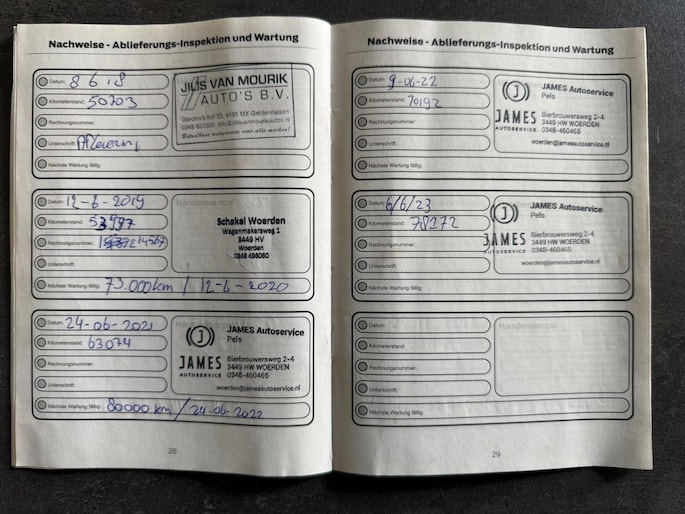 Nachweise - Ablieferungs-Inspektion und Wartung
Datum: 8 6 18
Kilometerstand: 50703
Rechnungsnummer:
Unterschrift:
Nächste Wartung fällig:
VAN MOURIK
AUTO'S B.V.
Datum: 12-6-2019
Kilometerstand: 53997
Rechnungsnummer:
Unterschrift:
Nächste Wartung fällig: 73.000km / 12-6-2020
Händlerstempel
Schakel Woerden
Wagenmakersweg 1
3449 HV
Woerden
Datum: 24-06-2021
Kilometerstand: 63074
Rechnungsnummer:
Unterschrift:
Nächste Wartung fällig: 80000 km / 24-06-2022
JAMES Autoservice
Pels
JAMES
AUTOSERVICE
Bierbrouwersweg 2-4
3449 HW WOERDEN
0348-460465
woerden@jamesautoservice.nl
28
Nachweise - Ablieferungs-Inspektion und Wartung
Datum: 9-06-22
Kilometerstand: 70192
Rechnungsnummer:
Unterschrift:
Nächste Wartung fällig:
JAMES Autoservice
Pels
JAMES
AUTOSERVICE
Bierbrouwersweg 2-4
3449 HW WOERDEN
0348-460465
woerden@jamesautoservice.nl
Datum: 6/6/23
Kilometerstand: 78172
Rechnungsnummer:
Unterschrift:
Nächste Wartung fällig:
Händlerstempel
JAMES Autoservice
Pels
JAMES
AUTOSERVICE
Bierbrouwersweg 2-4
3449 HW WOERDEN
0348-460465
woerden@jamesautoservice.nl
Datum:
Kilometerstand:
Rechnungsnummer:
Unterschrift:
Nächste Wartung fällig:
Händlerstempel
29